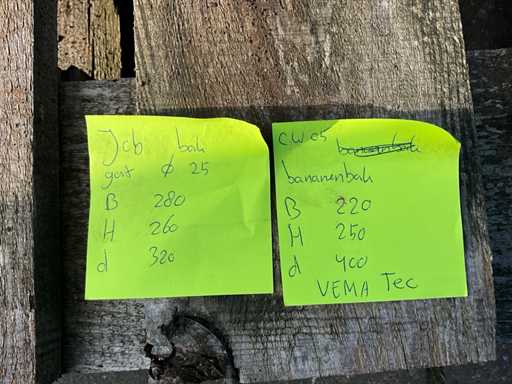 Jcb bak
gat ø 25
B 280
H 260
d 320
CW05
bananenbak
B 220
H 250
d 400
VEMA Tec